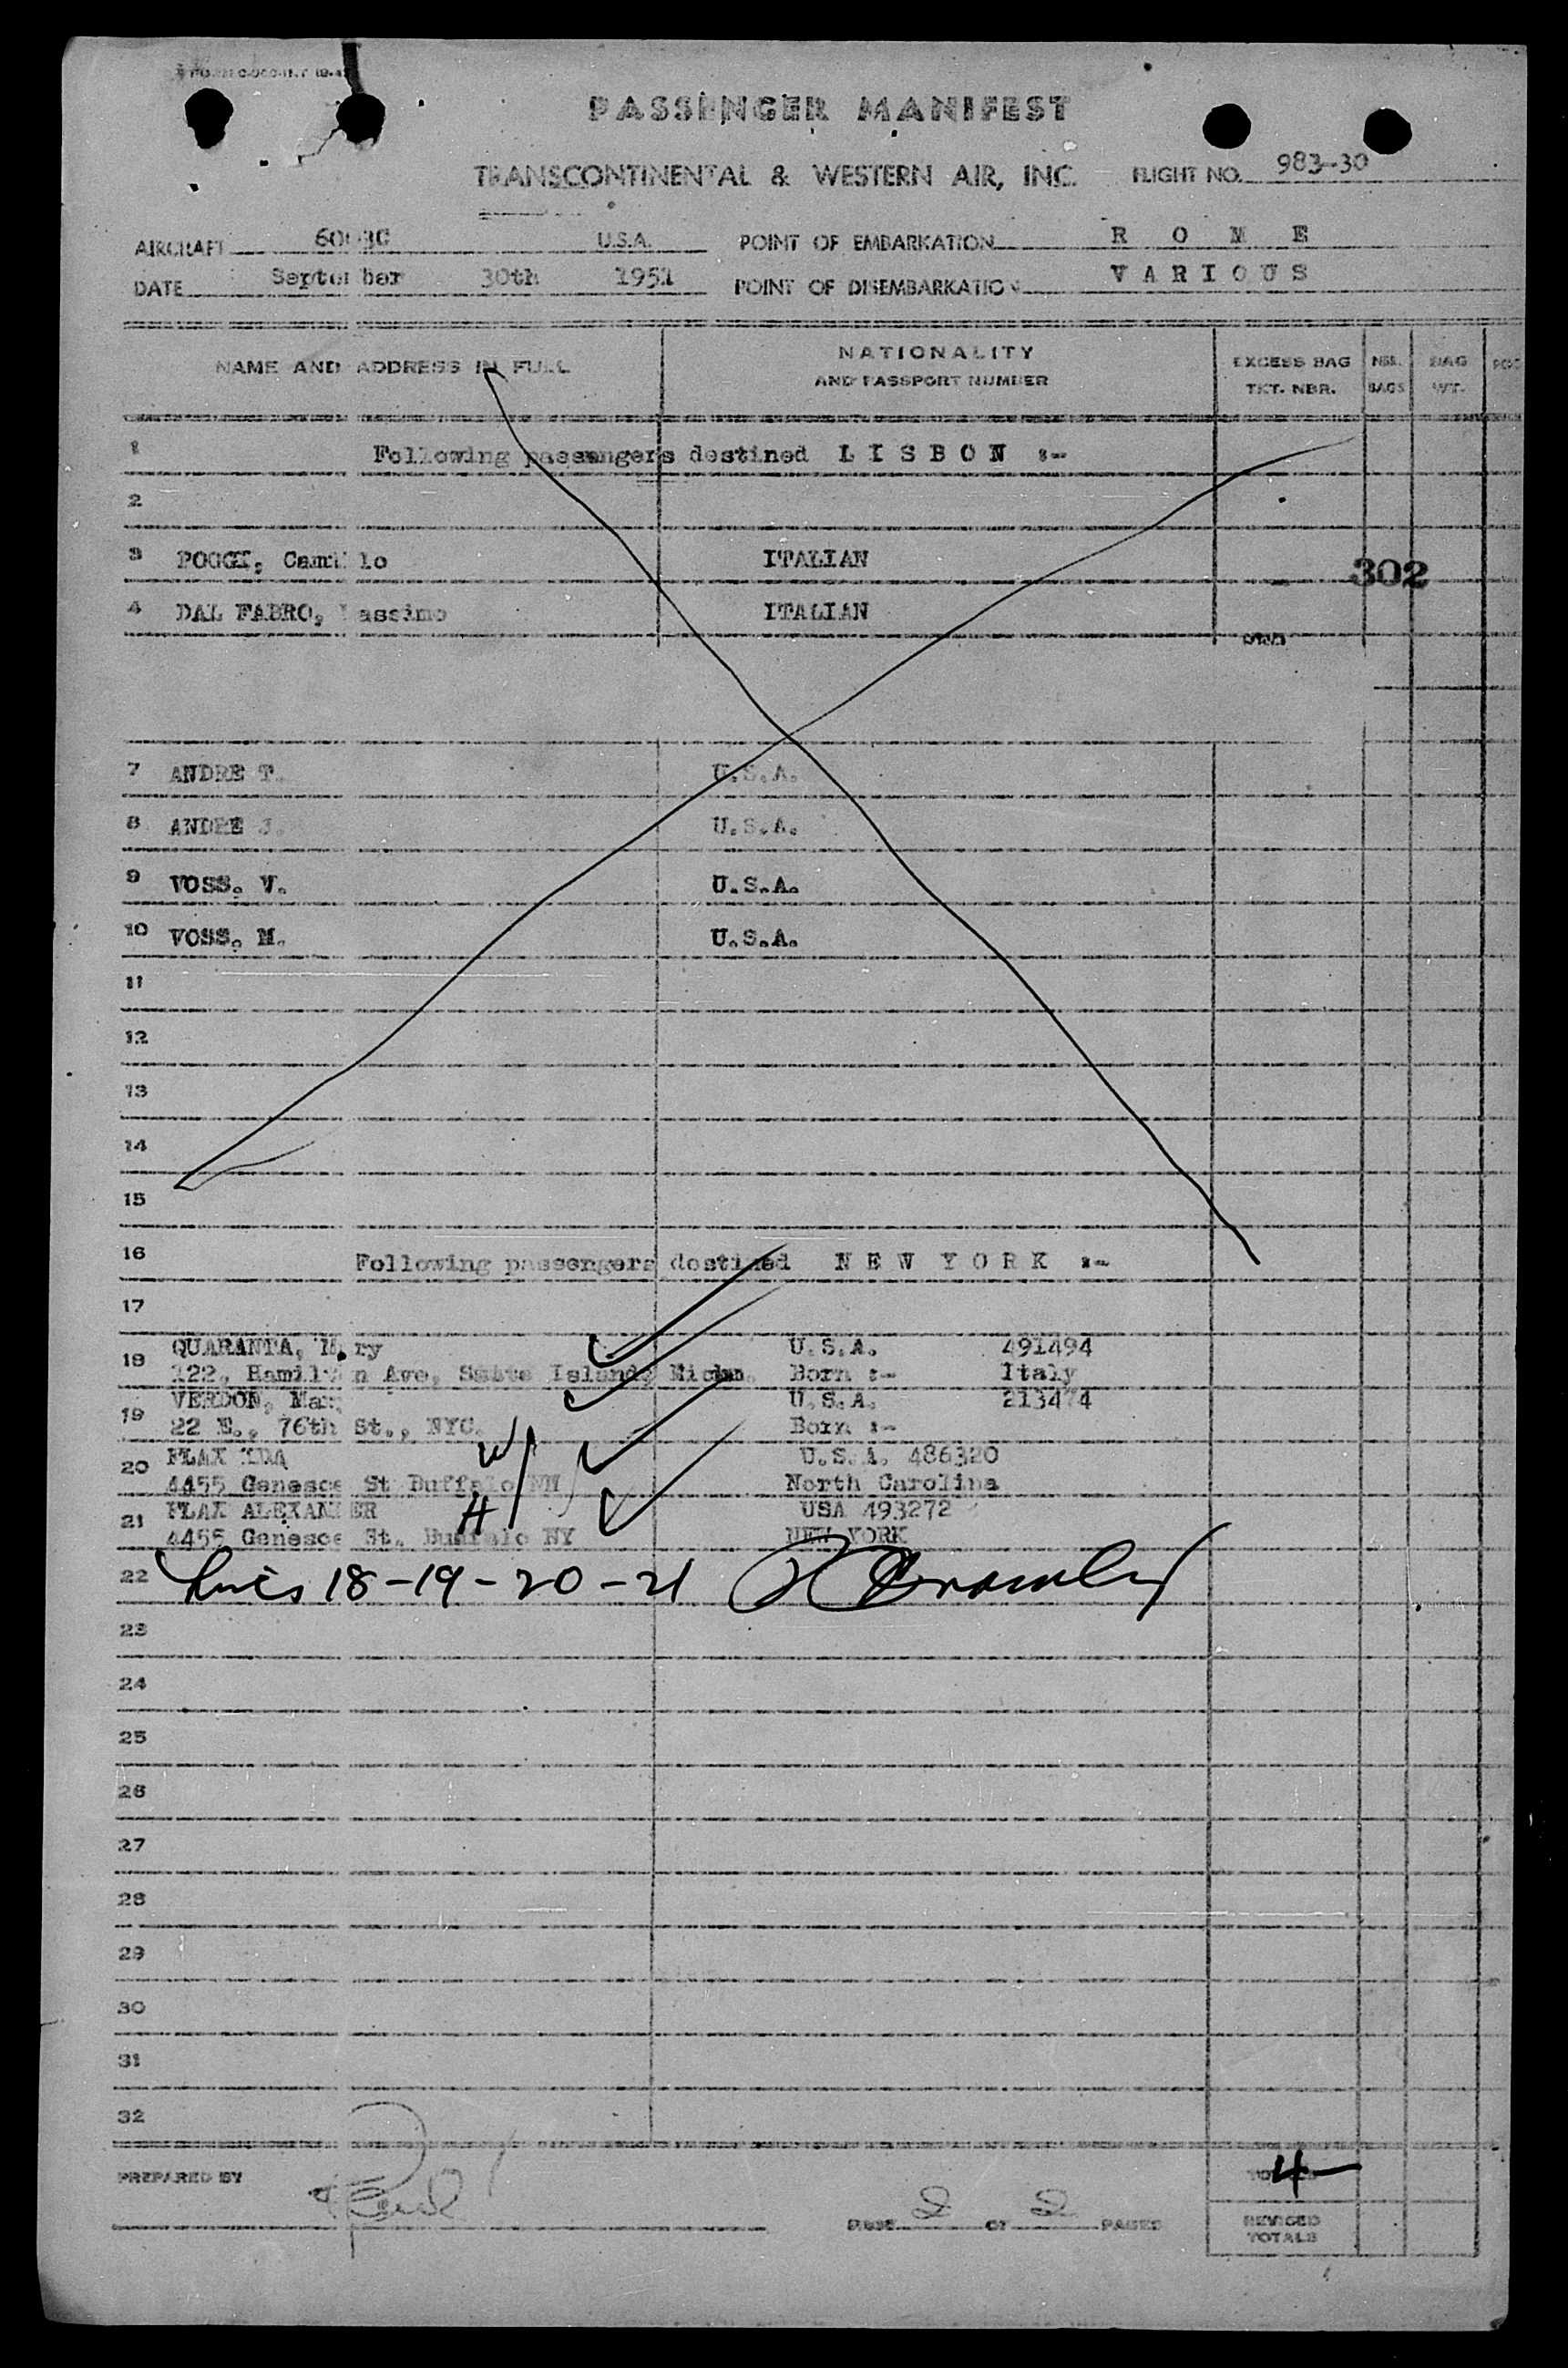 PASSENGER MANIFEST
TRANSCONTINENTAL & WESTERN AIR, INC. FLIGHT NO. 983-30
AIRCRAFT U.S.A. POINT OF EMBARKATION R O M E
DATE September 30th 1951 POINT OF DISEMBARKATION V A R I O U S
NAME AND ADDRESS IN FULL NATIONALITY AND PASSPORT NUMBER EXCESS BAG TKT. NBR. NBR. BAGS BAG WT.
1 Following passengers destined L I S B O N :-
2
3 POGGI, Camillo ITALIAN 302
4 DAL FABRO, Massimo ITALIAN
7 ANDRE T. U.S.A.
8 ANDRE J. U.S.A.
9 VOSS. V. U.S.A.
10 VOSS. M. U.S.A.
11
12
13
14
15
16 Following passengers destined N E W Y O R K :-
17
18 QUARANTA, Mary U.S.A. 491494
122, Hamilton Ave, Island, Born :- Italy
19 VERDON, U.S.A. 213474
22 E., 76th St., NYC. Born :-
20 FLAX IDA W U.S.A. 486320
4455 Genesee St Buffalo North Carolina
21 FLAX ALEXANDER H USA 493272
4455 Genesee St. Buffalo NY NEW YORK
22 Lines 18-19-20-21
23
24
25
26
27
28
29
30
31
32
PREPARED BY TOTALS 4
PAGE 2 OF 2 PAGES REVISED TOTALS